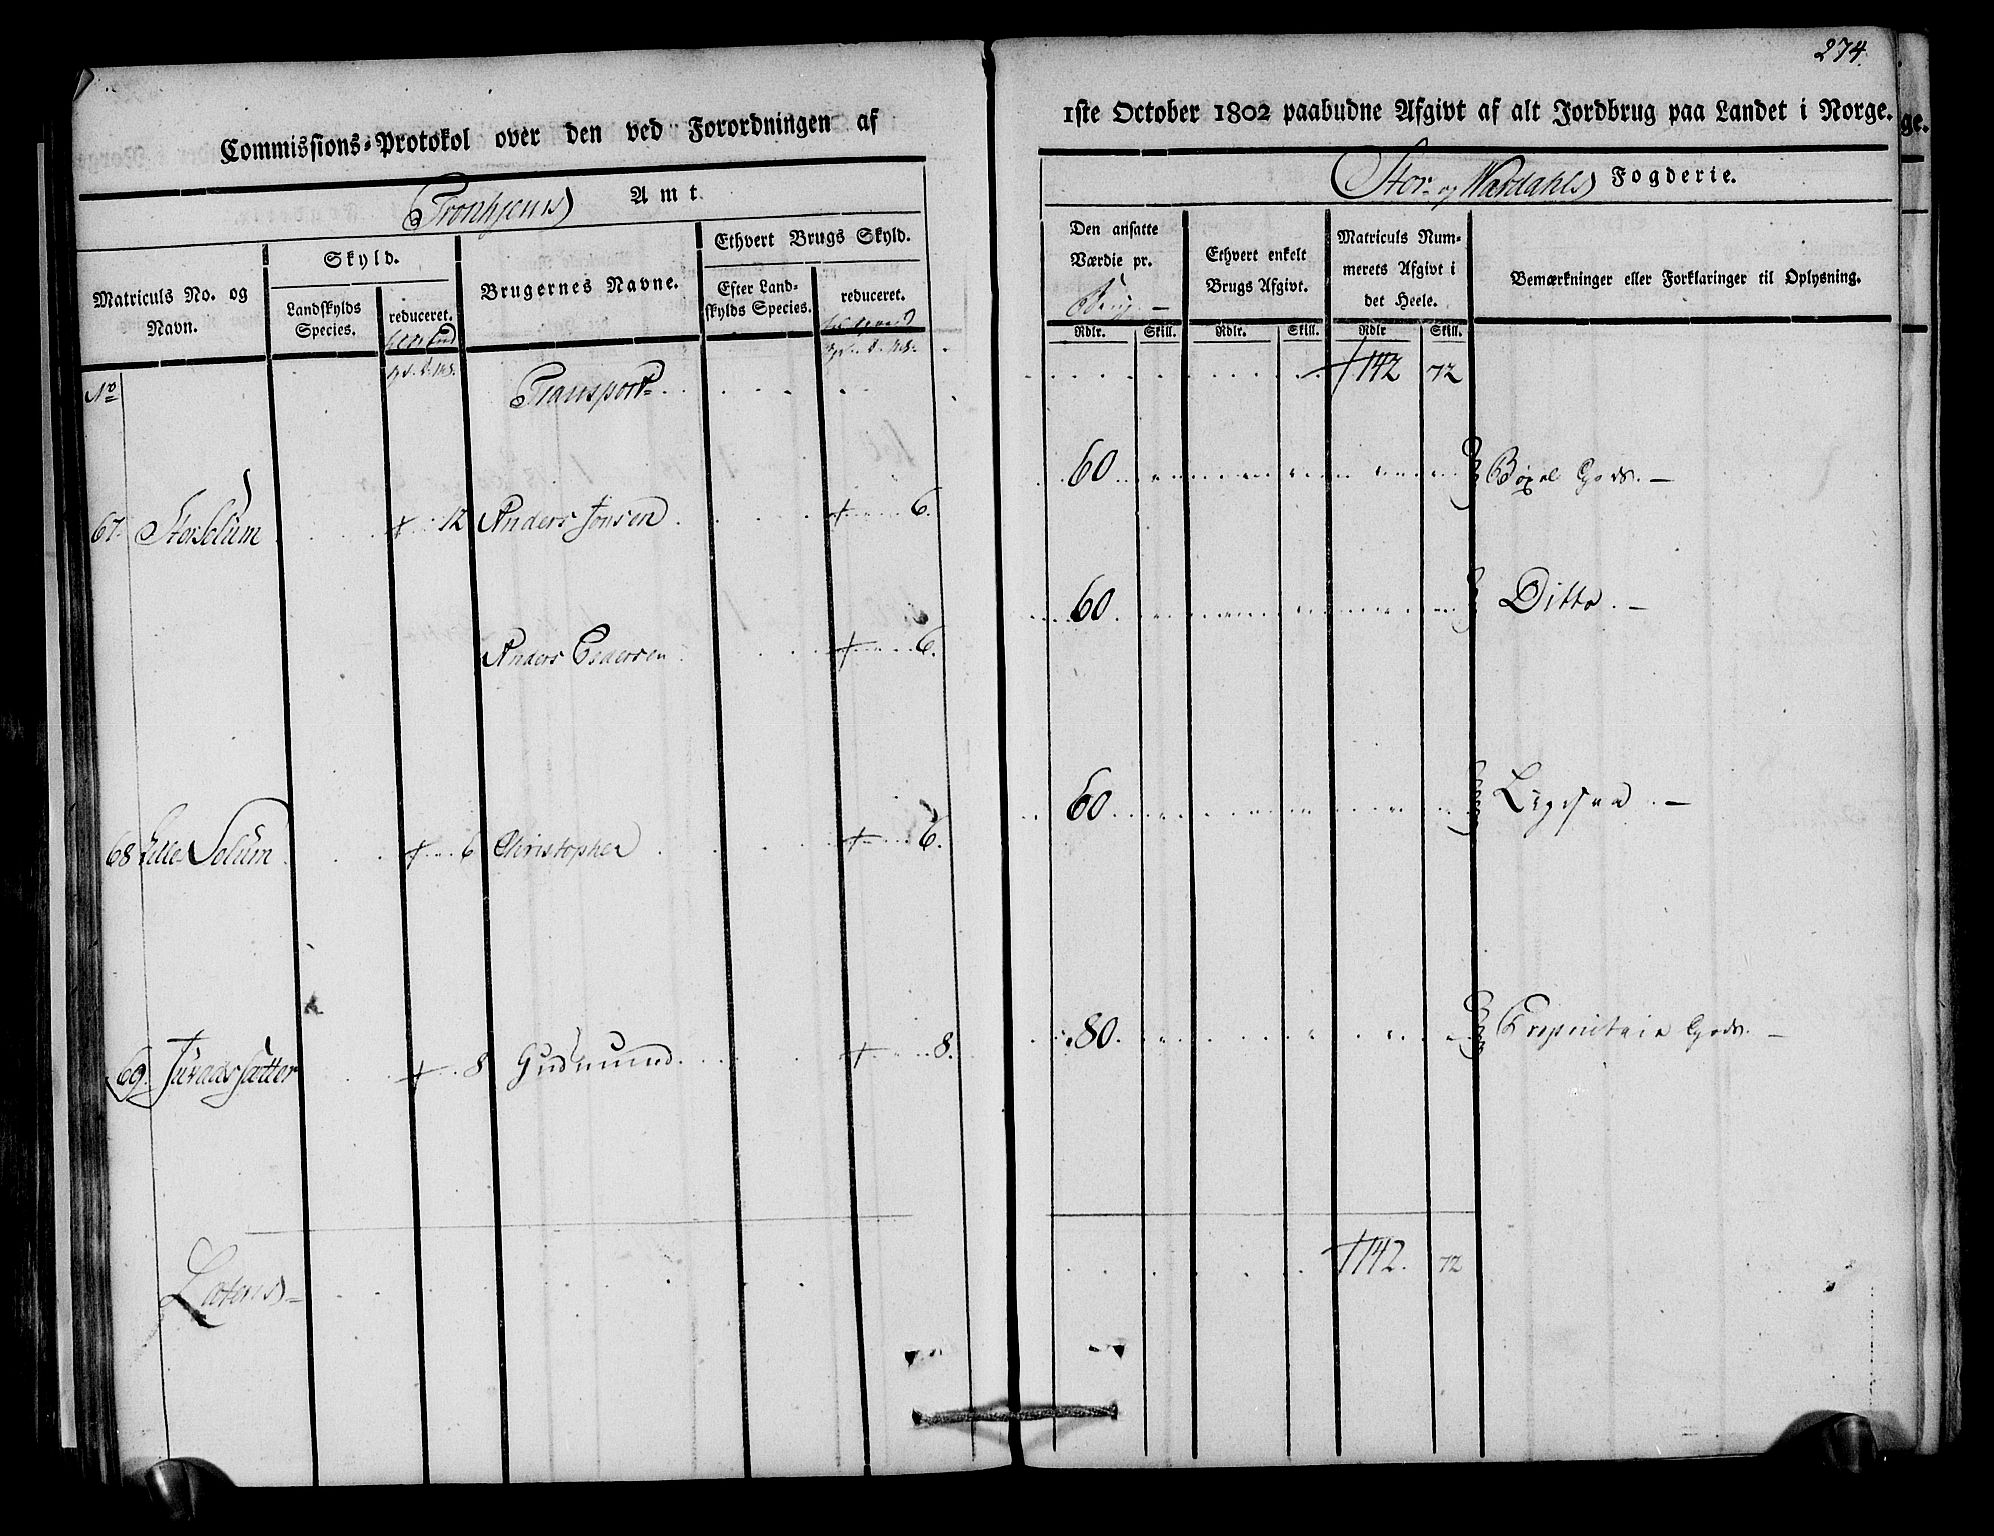 274.
Commissions-Protokol over den ved Forordningen af
1ste October 1802 paabudne Afgivt af alt Jordbrug paa Landet i Norge.
ge.
Tronhjems Amt.
Stor- og Wærdahls Fogderie.
Matriculs No. og Navn.
Skyld.
Landskylds Species.
reduceret.
Brugernes Navne.
Ethvert Brugs Skyld.
Efter Landskylds Species.
reduceret.
Den ansatte Værdie pr.
Ethvert enkelt Brugs Afgivt.
Matriculs Nummerets Afgivt i det Heele.
Bemærkninger eller Forklaringer til Oplysning.
Rdlr. Skill. Rdlr. Skill. Rdlr Skill.
No Transport 142 72
67. Storsolum 12 Anders Jonsen 6. 60 Bøxel Gods.
Anders Pedersen 6. 60 Ditto.
68 Lille Solum 6 Christopher 6. 60 Ligesaa
69. 8 Gudmund 8. 80 Proprietair Gods.
Latens 142. 72